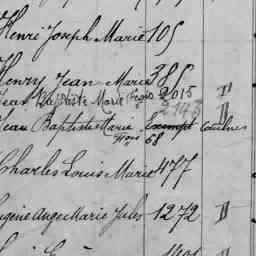 Henri Joseph Marie 105
Henry Jean Marie 385
Jean Baptiste Marie 2015 II
2143 II
Jean Baptiste Marie Exempt
68
Charles Louis Marie 477
Eugène Ange Marie Jules 1272 II